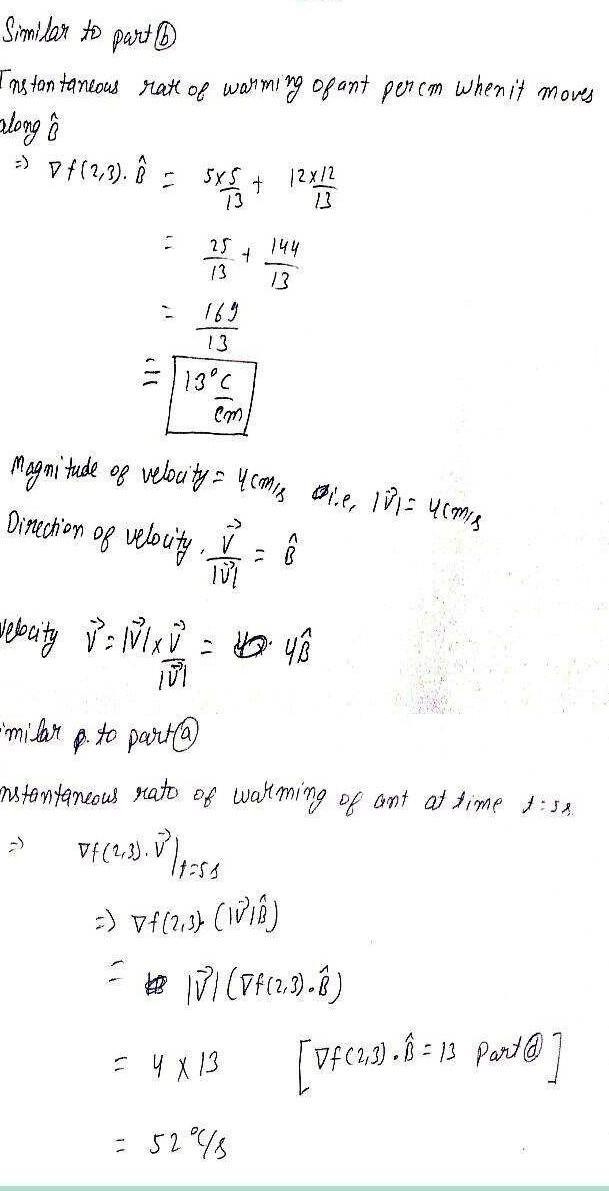 Similar to part ⓑ
Instantaneous rate of warming of ant per cm when it moves
along B̂
⇒ ∇f(2,3). B̂ = 5×5/13 + 12×12/13
= 25/13 + 144/13
= 169/13
= 13°C/cm
Magnitude of velocity = 4cm/s i.e, |V⃗| = 4cm/s
Direction of velocity. V⃗/|V⃗| = B̂
velocity V⃗ = |V⃗| × V⃗/|V⃗| = 4B̂
imilar p. to part ⓐ
nstantaneous rate of warming of ant at time t=5s
⇒ ∇f(2,3). V⃗|t=5s
⇒ ∇f(2,3). (|V⃗|B̂)
= |V⃗| (∇f(2,3). B̂)
= 4 × 13 [∇f(2,3) . B̂ = 13 Part ⓓ]
= 52 °C/s